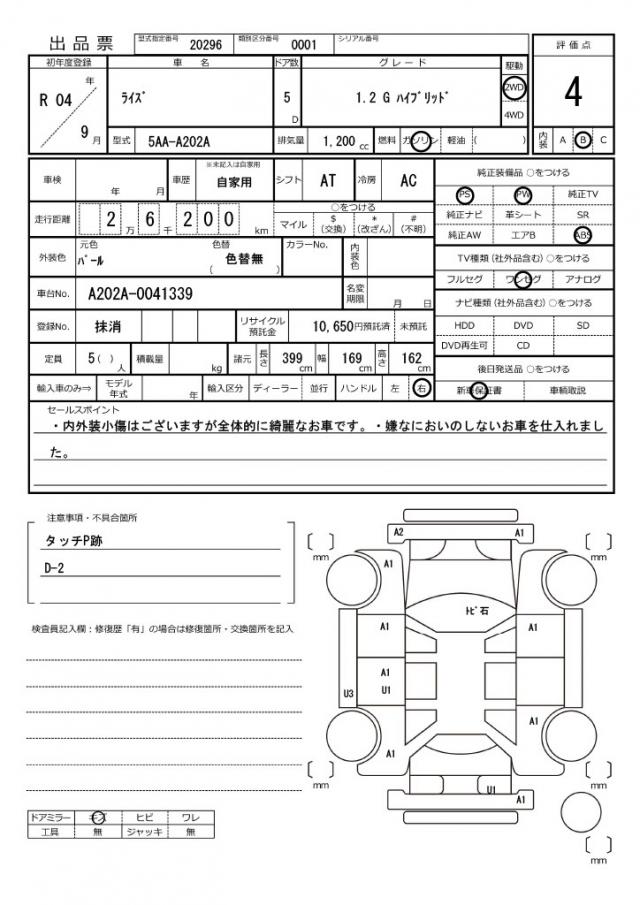 出品票 型式指定番号 20296 類別区分番号 0001 シリアル番号
評価点
4
初年度登録 車名 ドア数 グレード 駆動
R 04 年 9 月 ﾗｲｽﾞ 5 D 1.2 G ﾊｲﾌﾞﾘｯﾄﾞ 2WD
4WD
型式 5AA-A202A 排気量 1,200 cc 燃料 ガソリン 軽油 ( ) 内装 A B C
車検 年 月 車歴 ※未記入は自家用 自家用 シフト AT 冷房 AC
純正装備品 ○をつける
PS PW 純正TV
純正ナビ 革シート SR
純正AW エアB ABS
走行距離 2 万 6 千 2 0 0 km
○をつける
マイル $ (交換) * (改ざん) # (不明)
外装色 元色 ﾊﾟｰﾙ 色替 ( 色替無 ) カラーNo. 内装色
TV種類 (社外品含む) ○をつける
フルセグ ワンセグ アナログ
車台No. A202A-0041339 名変期限 月 日
ナビ種類 (社外品含む) ○をつける
HDD DVD SD
DVD再生可 CD
登録No. 抹消 リサイクル預託金 10,650円預託済 未預託
定員 5 ( ) 人 積載量 kg 諸元 長さ 399 cm 幅 169 cm 高さ 162 cm
後日発送品 ○をつける
新車保証書 車輌取説
輸入車のみ⇒ モデル年式 年 輸入区分 ディーラー 並行 ハンドル 左 右
セールスポイント
・内外装小傷はございますが全体的に綺麗なお車です。・嫌なにおいのしないお車を仕入れまし
た。
注意事項・不具合箇所
タッチP跡
D-2
検査員記入欄：修復歴「有」の場合は修復箇所・交換箇所を記入
A2 A1
mm mm
A1 A1
ﾄﾋﾞ石
A1 A1
A1
U3 U1
A1
A1
mm mm
U1
A1
mm
ドアミラー キズ ヒビ ワレ
工具 無 ジャッキ 無